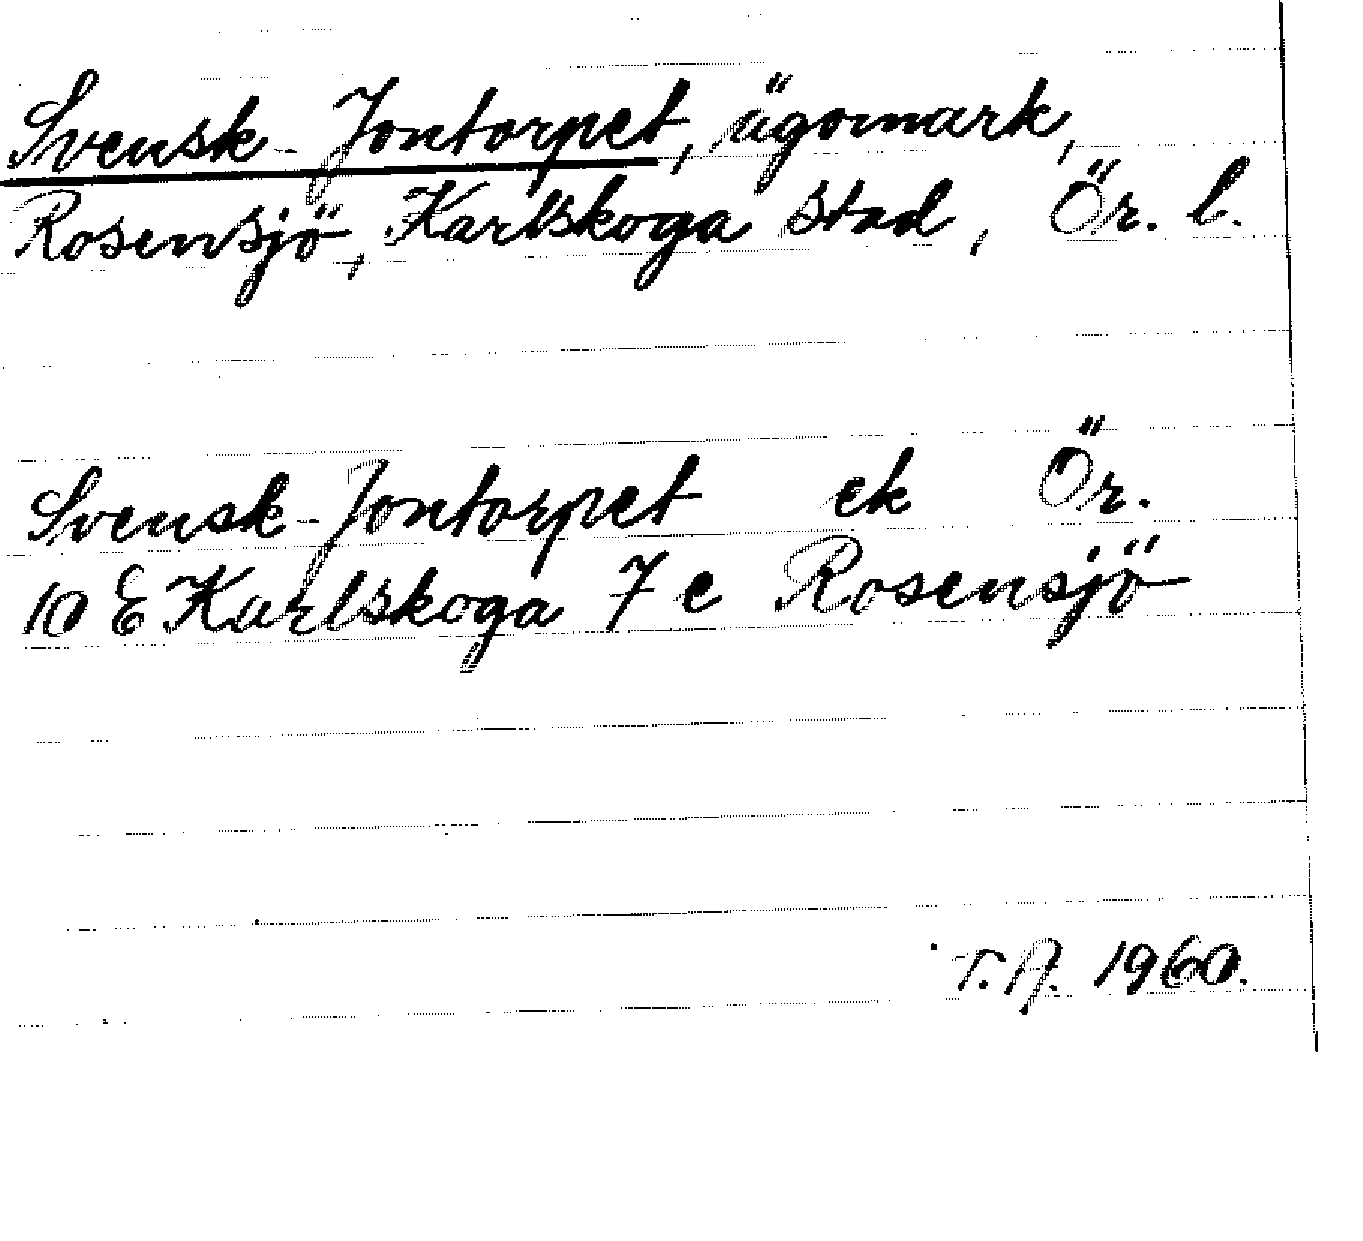 Svensk-Jontorpet, ägomark,
Rosensjö, Karlskoga stad, Ör. l.
Svensk-Jontorpet ek Ör.
10 E Karlskoga 7 e Rosensjö
T.A. 1960.